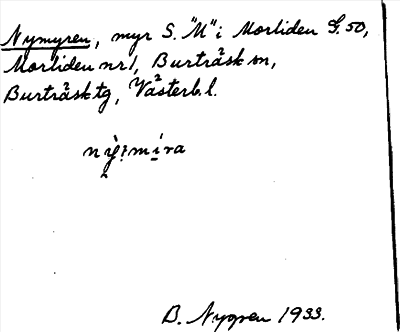 Nymyren, myr S. "M" i Morliden S. 50,
Morliden nr 1, Burträsk sn,
Burträsk tg, Västerb. l.
nỳ:mira
B. Nygren 1933.